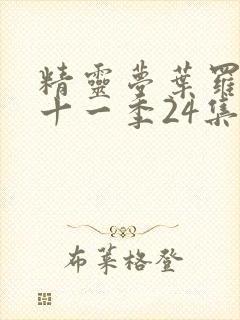 精靈夢葉羅
十一季24集
布萊格登